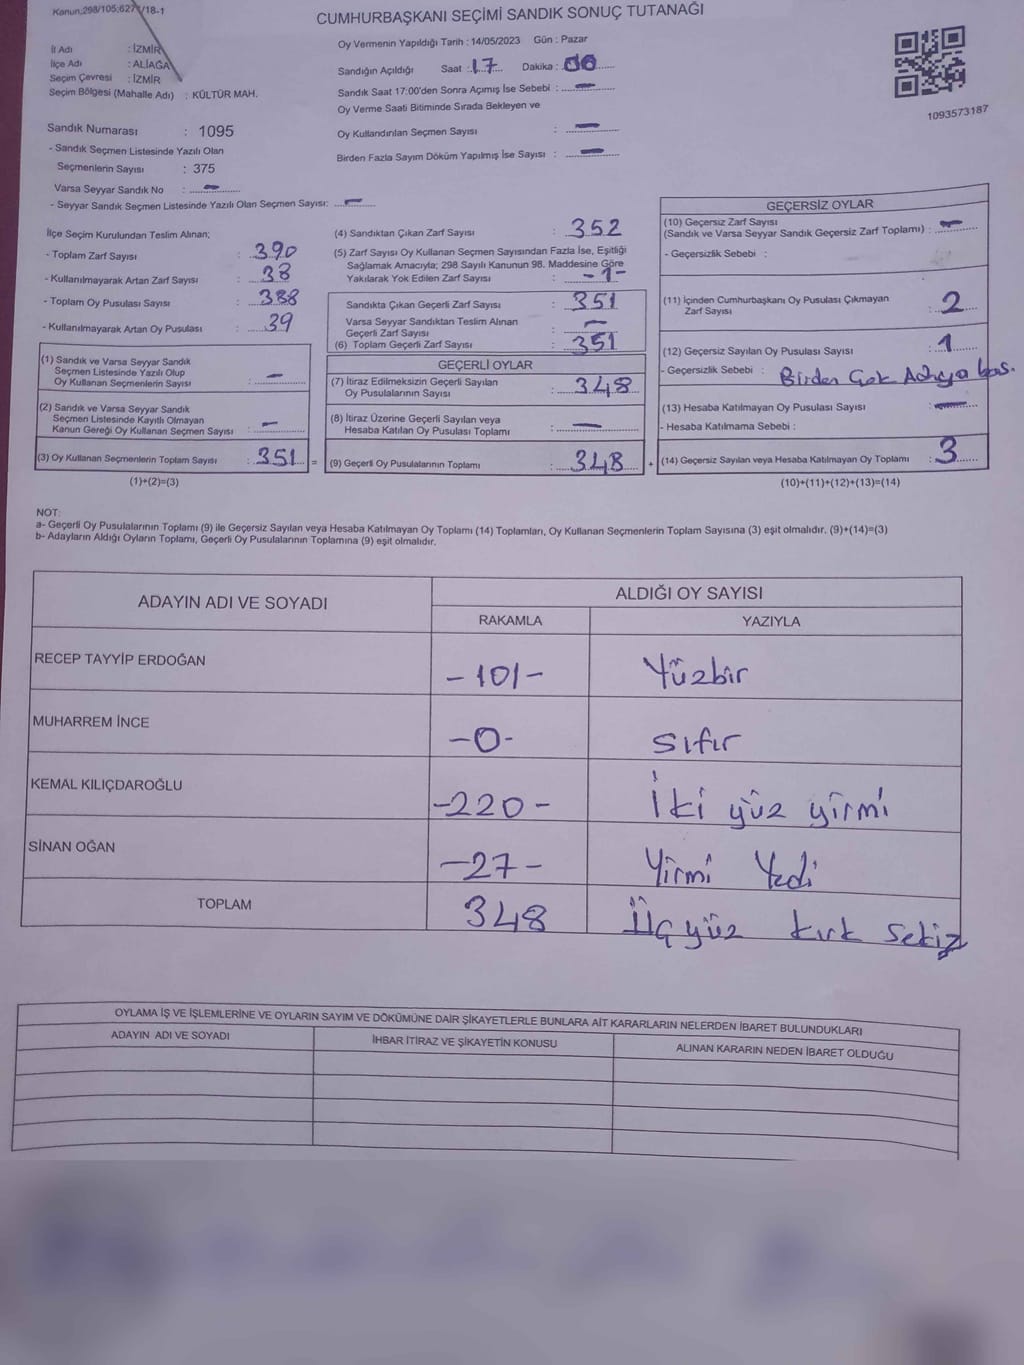 Kanun:298/105;6271/18-1
CUMHURBAŞKANI SEÇİMİ SANDIK SONUÇ TUTANAĞI
İl Adı : İZMİR
İlçe Adı : ALİAĞA
Seçim Çevresi : İZMİR
Seçim Bölgesi (Mahalle Adı) : KÜLTÜR MAH.
Oy Vermenin Yapıldığı Tarih : 14/05/2023 Gün : Pazar
Sandığın Açıldığı Saat : 17 Dakika : 00
Sandık Saat 17:00'den Sonra Açımış İse Sebebi : —
Oy Verme Saati Bitiminde Sırada Bekleyen ve
Oy Kullandırılan Seçmen Sayısı : —
Birden Fazla Sayım Döküm Yapılmış İse Sayısı : —
1093573187
Sandık Numarası : 1095
- Sandık Seçmen Listesinde Yazılı Olan
Seçmenlerin Sayısı : 375
Varsa Seyyar Sandık No : —
- Seyyar Sandık Seçmen Listesinde Yazılı Olan Seçmen Sayısı: —
İlçe Seçim Kurulundan Teslim Alınan;
- Toplam Zarf Sayısı : 390
- Kullanılmayarak Artan Zarf Sayısı : 38
- Toplam Oy Pusulası Sayısı : 388
- Kullanılmayarak Artan Oy Pusulası : 39
(1) Sandık ve Varsa Seyyar Sandık
Seçmen Listesinde Yazılı Olup
Oy Kullanan Seçmenlerin Sayısı : —
(2) Sandık ve Varsa Seyyar Sandık
Seçmen Listesinde Kayıtlı Olmayan
Kanun Gereği Oy Kullanan Seçmen Sayısı : —
(3) Oy Kullanan Seçmenlerin Toplam Sayısı : 351 =
(1)+(2)=(3)
(4) Sandıktan Çıkan Zarf Sayısı : 352
(5) Zarf Sayısı Oy Kullanan Seçmen Sayısından Fazla İse, Eşitliği
Sağlamak Amacıyla; 298 Sayılı Kanunun 98. Maddesine Göre
Yakılarak Yok Edilen Zarf Sayısı : -1-
Sandıkta Çıkan Geçerli Zarf Sayısı : 351
Varsa Seyyar Sandıktan Teslim Alınan
Geçerli Zarf Sayısı : —
(6) Toplam Geçerli Zarf Sayısı : 351
GEÇERLİ OYLAR
(7) İtiraz Edilmeksizin Geçerli Sayılan
Oy Pusulalarının Sayısı : 348
(8) İtiraz Üzerine Geçerli Sayılan veya
Hesaba Katılan Oy Pusulası Toplamı : —
(9) Geçerli Oy Pusulalarının Toplamı : 348 +
GEÇERSİZ OYLAR
(10) Geçersiz Zarf Sayısı
(Sandık ve Varsa Seyyar Sandık Geçersiz Zarf Toplamı) : —
- Geçersizlik Sebebi :
(11) İçinden Cumhurbaşkanı Oy Pusulası Çıkmayan
Zarf Sayısı : 2
(12) Geçersiz Sayılan Oy Pusulası Sayısı : 1
- Geçersizlik Sebebi : Birden Çok Adaya bas.
(13) Hesaba Katılmayan Oy Pusulası Sayısı : —
- Hesaba Katılmama Sebebi :
(14) Geçersiz Sayılan veya Hesaba Katılmayan Oy Toplamı : 3
(10)+(11)+(12)+(13)=(14)
NOT:
a- Geçerli Oy Pusulalarının Toplamı (9) ile Geçersiz Sayılan veya Hesaba Katılmayan Oy Toplamı (14) Toplamları, Oy Kullanan Seçmenlerin Toplam Sayısına (3) eşit olmalıdır. (9)+(14)=(3)
b- Adayların Aldığı Oyların Toplamı, Geçerli Oy Pusulalarının Toplamına (9) eşit olmalıdır.
ADAYIN ADI VE SOYADI ALDIĞI OY SAYISI
RAKAMLA YAZIYLA
RECEP TAYYİP ERDOĞAN -101- Yüzbir
MUHARREM İNCE -0- Sıfır
KEMAL KILIÇDAROĞLU -220- İki yüz yirmi
SİNAN OĞAN -27- Yirmi Yedi
TOPLAM 348 Üç yüz kırk sekiz
OYLAMA İŞ VE İŞLEMLERİNE VE OYLARIN SAYIM VE DÖKÜMÜNE DAİR ŞİKAYETLERLE BUNLARA AİT KARARLARIN NELERDEN İBARET BULUNDUKLARI
ADAYIN ADI VE SOYADI İHBAR İTİRAZ VE ŞİKAYETİN KONUSU ALINAN KARARIN NEDEN İBARET OLDUĞU